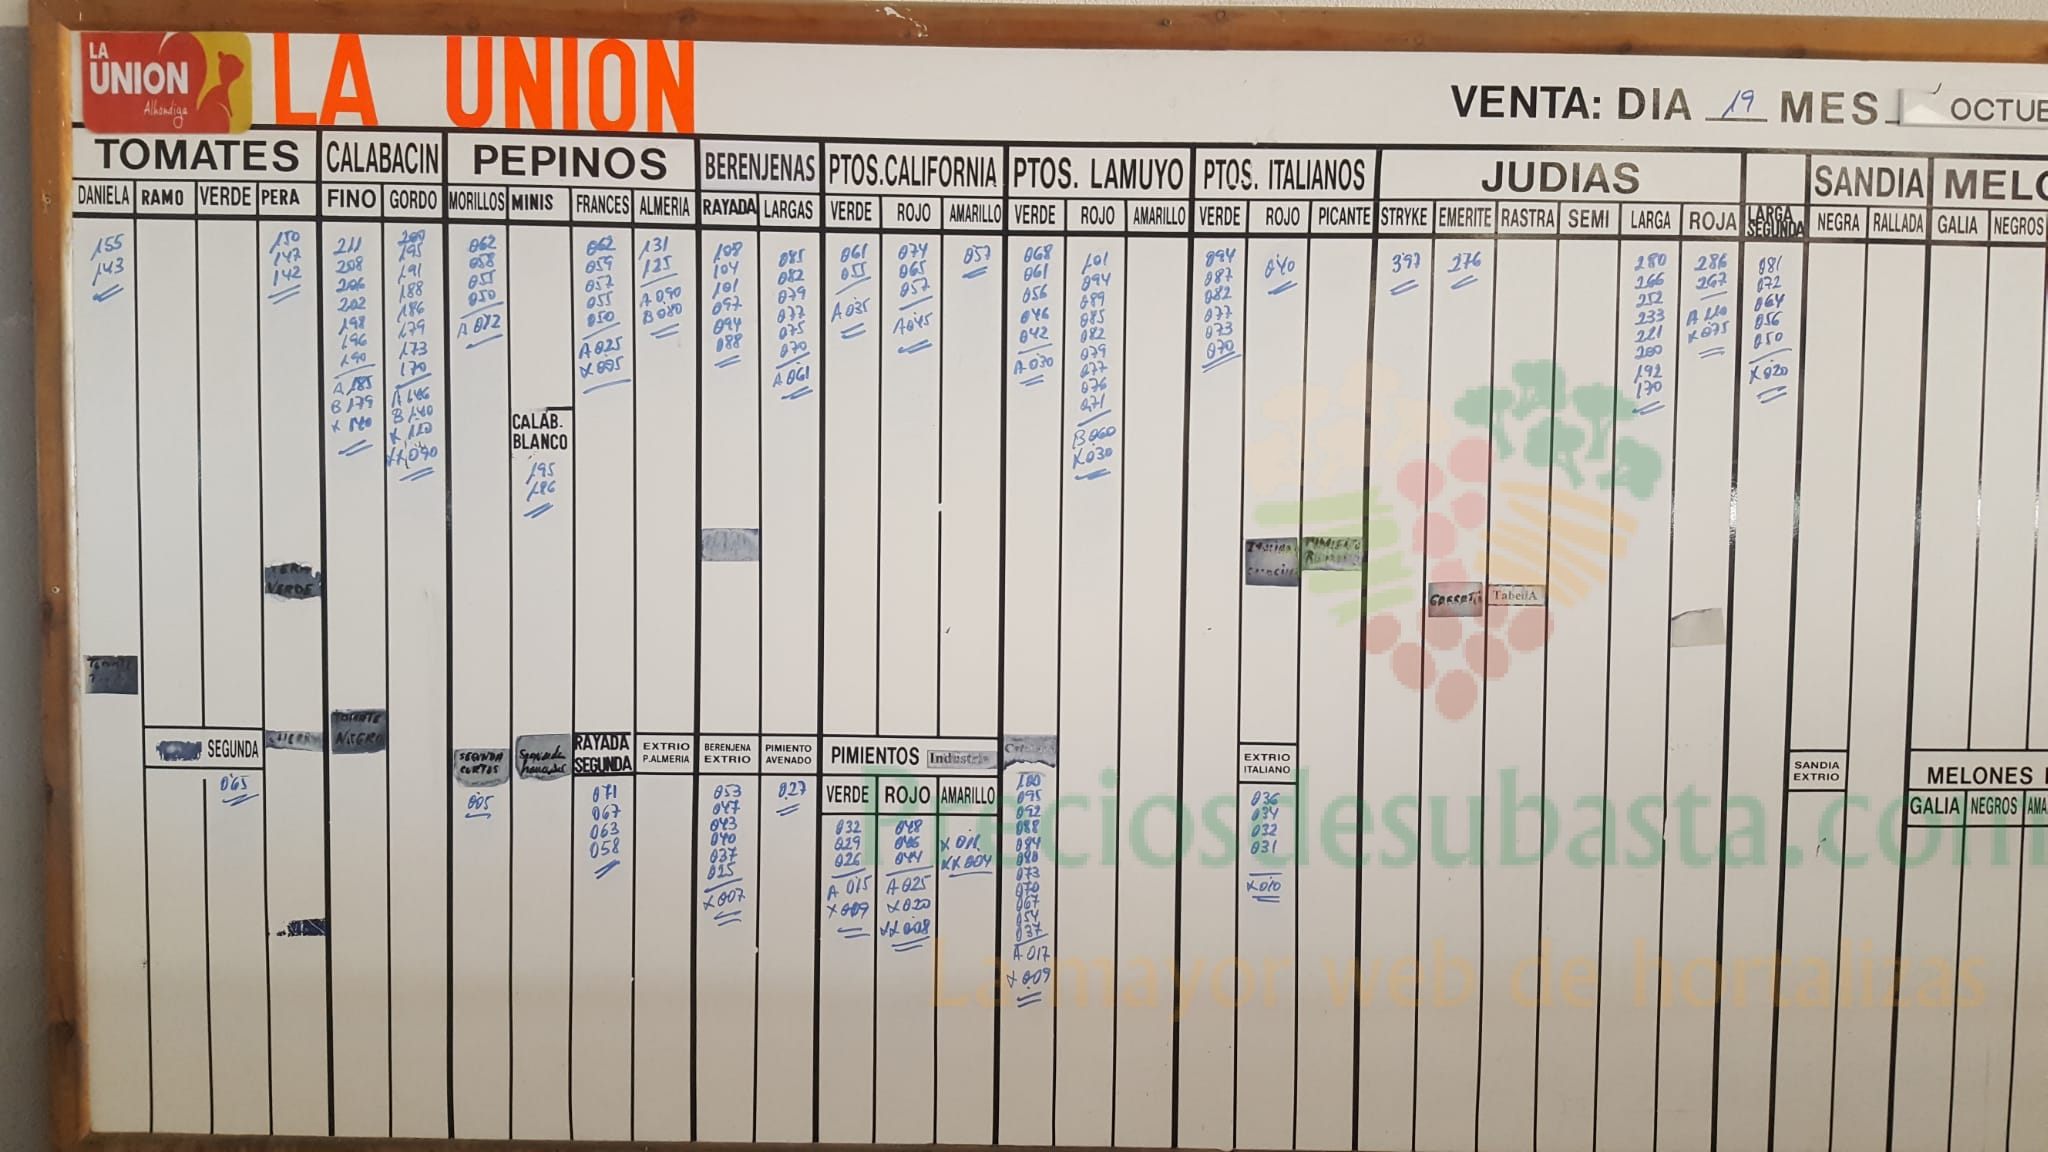 LA
UNION
Alhondiga
LA UNION
VENTA: DIA 19 MES OCTUB
TOMATES CALABACIN PEPINOS BERENJENAS PTOS.CALIFORNIA PTOS. LAMUYO PTOS. ITALIANOS JUDIAS SANDIA MELO
DANIELA RAMO VERDE PERA FINO GORDO MORILLOS MINIS FRANCES ALMERIA RAYADA LARGAS VERDE ROJO AMARILLO VERDE ROJO AMARILLO VERDE ROJO PICANTE STRYKE EMERITE RASTRA SEMI LARGA ROJA LARGA SEGUNDA NEGRA RALLADA GALIA NEGROS
155
143
150
147
142
211
208
206
202
198
196
190
A 185
B 179
X 140
195
191
188
186
179
173
170
A 146
B 140
X 120
XX 090
062
058
055
050
A 042
CALAB.
BLANCO
195
186
062
059
057
055
050
A 025
X 005
131
125
A 090
B 080
108
104
101
097
094
088
085
082
079
077
075
070
A 061
061
055
A 035
074
065
057
A 045
057
068
061
056
046
042
A 030
101
094
089
085
082
079
077
076
071
B 060
X 030
094
087
082
077
073
070
040
397
276
280
266
252
233
221
200
192
170
286
267
A 110
X 075
081
072
064
056
050
X 020
VERDE
GARRAFA
TabellA
SEGUNDA
065
NEGRO
SEGUNDA
CORTOS
005
Segunda
RAYADA
SEGUNDA
071
067
063
058
EXTRIO
P.ALMERIA
BERENJENA
EXTRIO
053
047
043
040
037
025
X 007
PIMIENTO
AVENADO
027
PIMIENTOS Industria
VERDE ROJO AMARILLO
032
029
026
A 015
X 009
048
046
044
A 025
X 020
XX 008
X 011
XX 004
100
095
092
088
084
080
073
070
067
054
037
A 017
X 009
EXTRIO
ITALIANO
036
034
032
031
X 010
SANDIA
EXTRIO
MELONES
GALIA NEGROS AMA
Preciosdesubasta.com
La mayor web de hortalizas